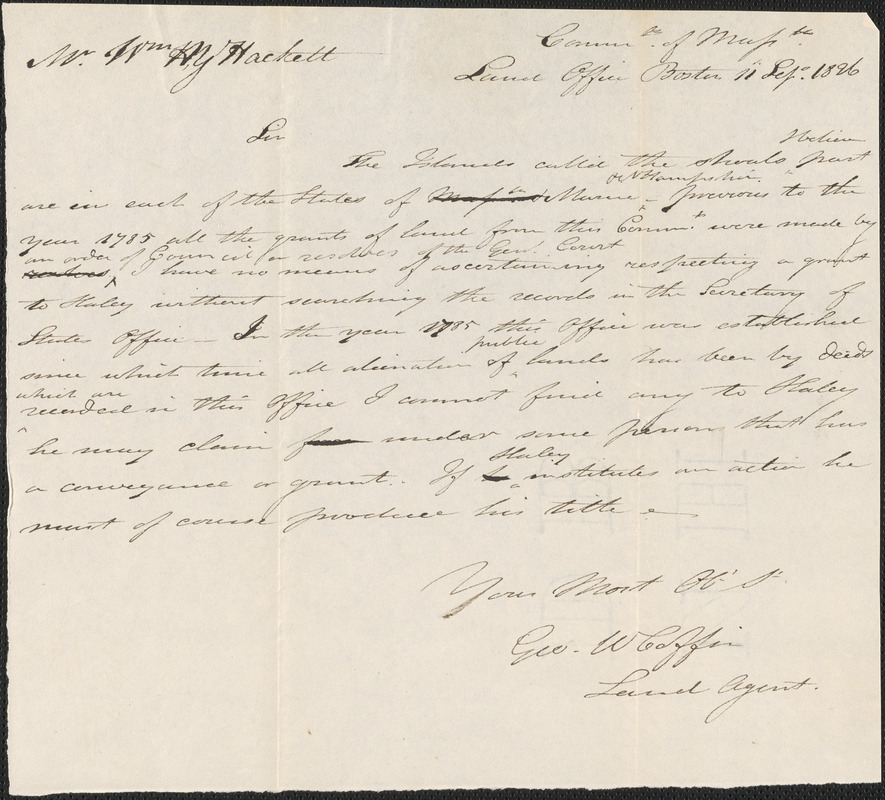 Mr. Wm Hy Hackett
Commth. of Massts.
Land Office Boston 11 Sep. 1826
Sir
The Islands called the shoals part
are in each of the States of Massts & Maine & N Hampshire. previous to the
year 1785 all the grants of land from this Commth were made by
an order of Council or resolves of the Genl. Court
resolves, I have no means of ascertaining respecting a grant
to Haley without searching the records in the Secretary of
States Office — In the year 1785 this Office was established
since which time all alienation of public lands has been by deeds
which are
recorded in this Office I cannot find any to Haley
he may claim from under some person that has
a conveyance or grant. If he Haley institutes an action he
must of course produce his title —
Your Most Ob St.
Geo. W Coffin
Land Agent.